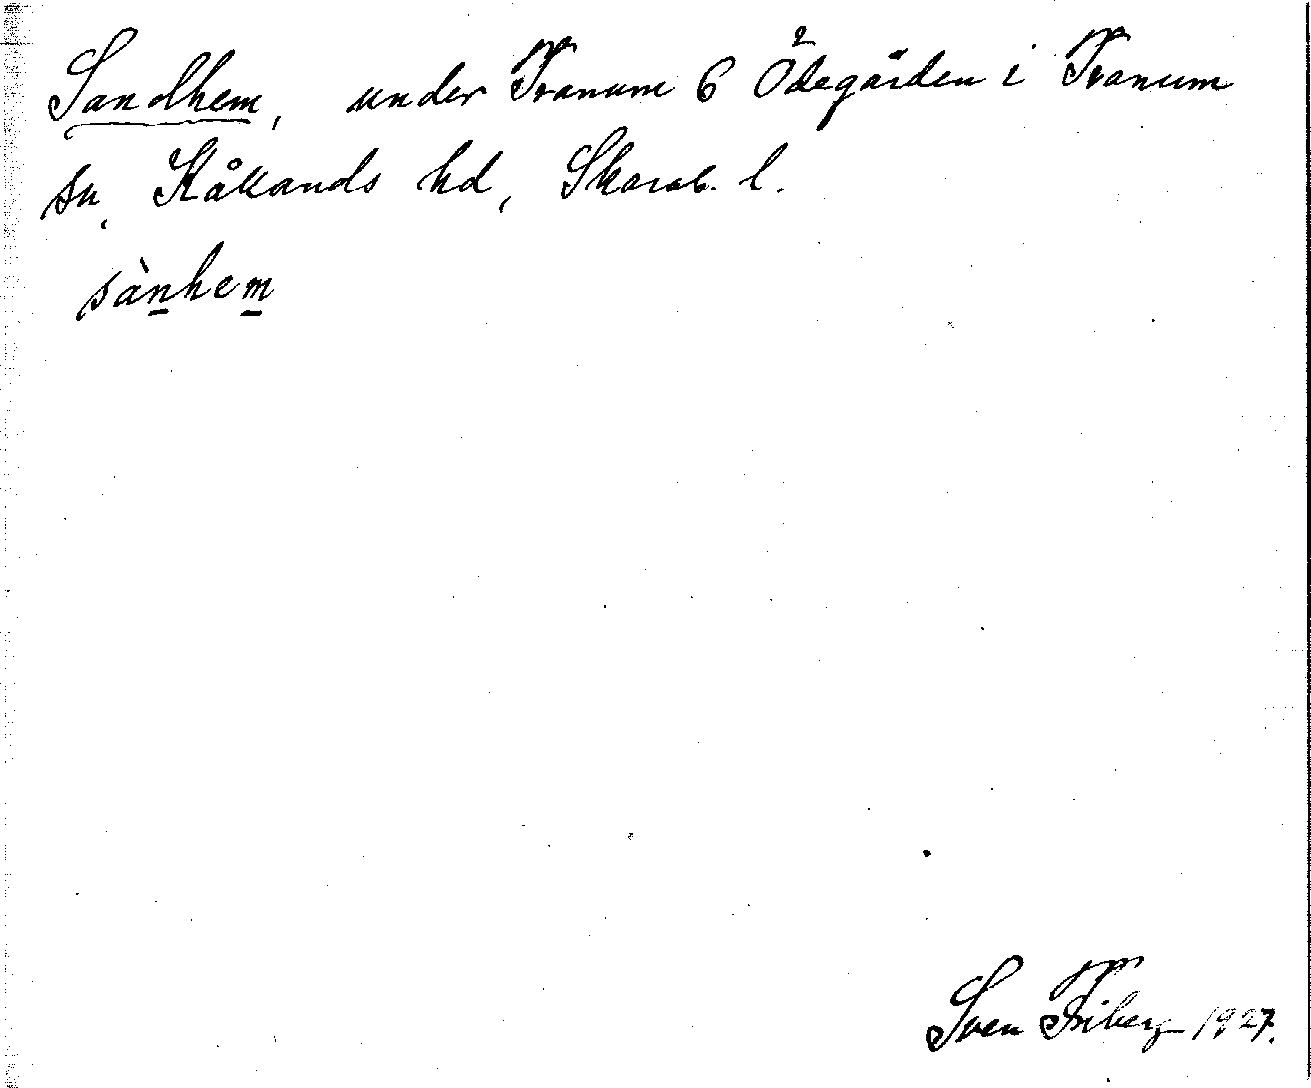 Sandhem, under Tranum 6 Ödegården i Tranum
sn, Kållands hd, Skarab. l.
sànhem
Sven Friberg 1927.